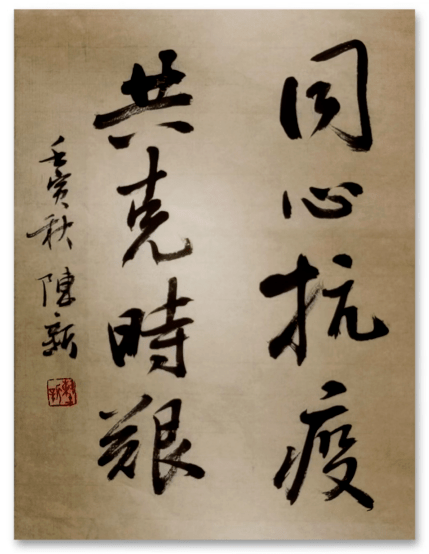 同心抗疫
共克時艱
壬寅秋 陳新